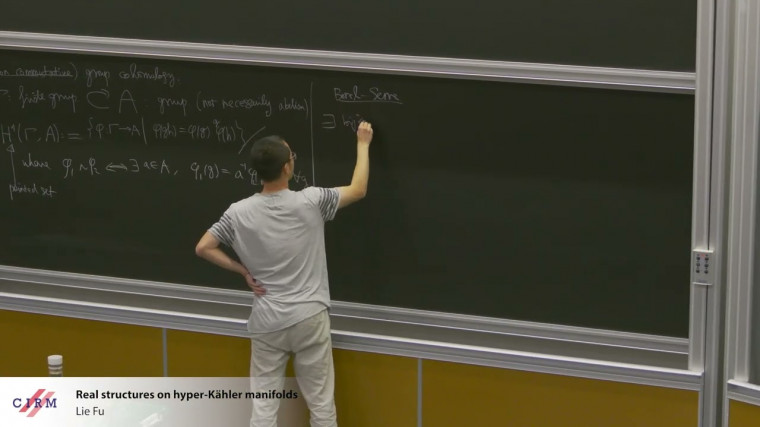 commutative) group cohomology
finite group A group (not necessarily abelian)
H¹(Γ, A) := {φ: Γ→A | φ(gh) = φ(g) φ(h)}
where φ₁ ~ φ₂ ⟺ ∃ a∈A, φ₁(g) = a⁻¹
pointed set
Borel-Serre
∃
CIRM
Real structures on hyper-Kähler manifolds
Lie Fu